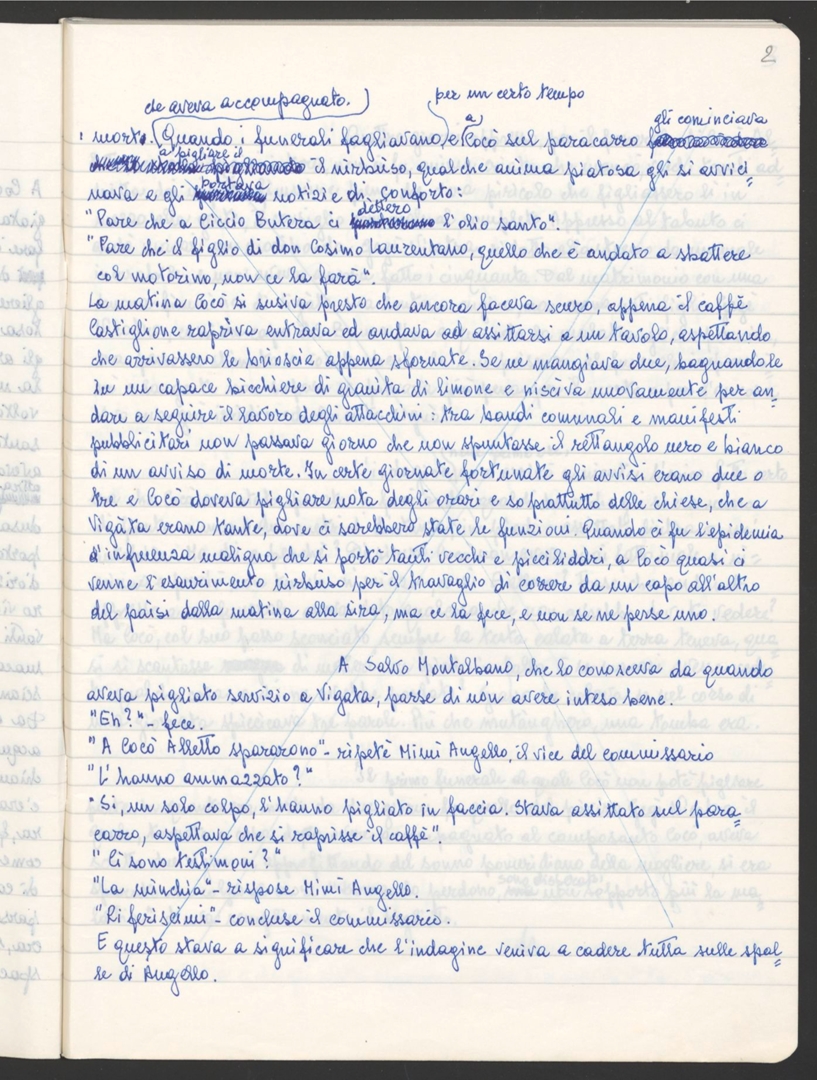 2
che aveva accompagnato.
per un certo tempo
i morti. Quando i funerali fagliavano, e a Cocò sul paracarro gli cominciava
a pigliare il il nirbùso, qualche anima piatosa gli si avvici=
nava e gli portava notizie di conforto:
"Pare che a Ciccio Butera ci dettero l'olio santo".
"Pare che il figlio di don Cosimo Laurentano, quello che è andato a sbattere
col motorino, non ce la farà".
La matina Cocò si susiva presto che ancora faceva scuro, appena il caffè
Castiglione rapriva entrava ed andava ad assittarsi a un tavolo, aspettando
che arrivassero le brioscie appena sfornate. Se ne mangiava due, bagnandole
in un capace bicchiere di granita di limone e nisciva nuovamente per an=
dare a seguire il lavoro degli attacchini: tra bandi comunali e manifesti
pubblicitari non passava giorno che non spuntasse il rettangolo nero e bianco
di un avviso di morte. In certe giornate fortunate gli avvisi erano due o
tre e Cocò doveva pigliare nota degli orari e soprattutto delle chiese, che a
Vigàta erano tante, dove ci sarebbero state le funzioni. Quando ci fu l'epidemia
d'influenza maligna che si portò tanti vecchi e picciliddri, a Cocò quasi ci
venne l'esaurimento nirbùso per il travaglio di correre da un capo all'altro
del paìsi dalla matina alla sira, ma ce la fece, e non se ne perse uno.
A Salvo Montalbano, che lo conosceva da quando
aveva pigliato servizio a Vigàta, parse di non avere inteso bene.
"Eh?" - fece.
"A Cocò Alletto spararono" - ripetè Mimì Augello, il vice del commissario
"L'hanno ammazzato?"
"Sì, un solo colpo, l'hanno pigliato in faccia. Stava assittato sul para=
carro, aspettava che si raprisse il caffè".
"Ci sono testimoni?"
"La minchia" - rispose Mimì Augello.
"Riferiscimi" - concluse il commissario.
E questo stava a significare che l'indagine veniva a cadere tutta sulle spal=
le di Augello.